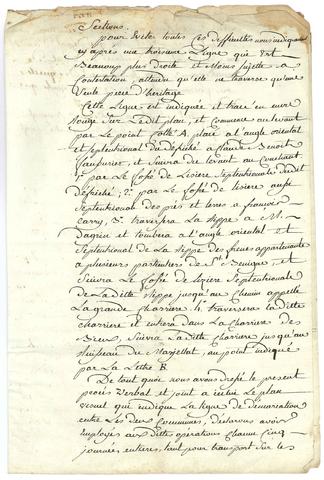 Sections.
pour Eviter toutes Ces difficultés nous indiquons
cy après une troisieme Ligne qui Est
Beaucoup plus droite et Moins sujette a
Contestation attendu qu'elle ne traverse qu'une
seule piece d'heritage.
Cette Ligne est indiquée et tracé en encre
Rouge sur Ledit plan, et Commence au levant
par Le point Cotté A, placé a l'angle oriental
et septentrional du défriché a Claude Benoit
et Suivra de levant au Couchant
1° par Le fossé de Lisiere Septentrionale dudit
défriché; 2° par Le fossé de lisiere aussi
Septentrional des prés et terres a françois
Carry, 3° traversera La Steppe a M.
Dagrin et tombera a l'angle oriental et
Septentrional de La Steppe des freres appartenante
a plusieurs particuliers de St Benigne, et
Suivra Le fossé de lisiere Septentrionale
de Laditte Steppe jusqu'au Chemin appellé
La grande Charriere 4° traversera La ditte
Charriere et entrera dans La Charriere des
Bieux, Suivra Laditte Charriere jusqu'au
Ruisseau du Marjollat, au point indiqué
par La Lettre B.
De tout quoi nous avons dressé Le present
procès Verbal et joint a icelui Le plan
visuel qui indique La ligne de démarcation
entre Les deux Communes, déclarons avoir
Employés aux dittes opérations Chacun Cinq
journées entieres, tant pour transport sur Les